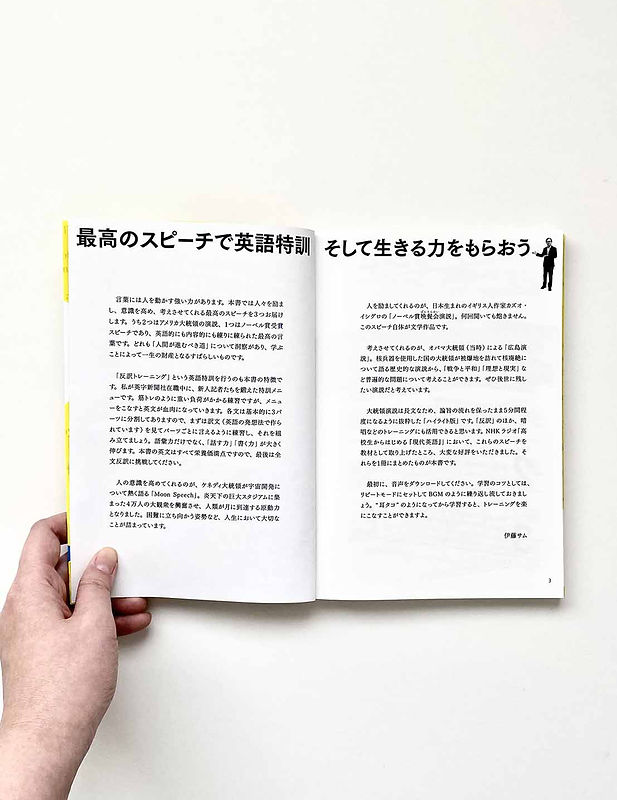 最高のスピーチで英語特訓
言葉には人を動かす強い力があります。本書では人々を励ま
し、意識を高め、考えさせてくれる最高のスピーチを3つお届け
します。うち2つはアメリカ大統領の演説、1つはノーベル賞受賞
スピーチであり、英語的にも内容的にも練りに練られた最高の言
葉です。どれも「人間が進むべき道」について洞察があり、学ぶ
ことによって一生の財産となるすばらしいものです。
「反訳トレーニング」という英語特訓を行うのも本書の特徴で
す。私が英字新聞社在職中に、新人記者たちを鍛えた特訓メニ
ューです。筋トレのように重い負荷がかかる練習ですが、メニュ
ーをこなすと英文が血肉になっていきます。各文は基本的に3パ
ーツに分割してありますので、まずは訳文（英語の発想法で作ら
れています）を見てパーツごとに言えるように練習し、それを組
み立てましょう。語彙力だけでなく、「話す力」「書く力」が大きく
伸びます。本書の英文はすべて栄養価満点ですので、最後は全
文反訳に挑戦してください。
人の意識を高めてくれるのが、ケネディ大統領が宇宙開発に
ついて熱く語る「Moon Speech」。炎天下の巨大スタジアムに集
まった4万人の大観衆を興奮させ、人類が月に到達する原動力
となりました。困難に立ち向かう姿勢など、人生において大切な
ことが詰まっています。
そして生きる力をもらおう
人を励ましてくれるのが、日本生まれのイギリス人作家カズオ・
イシグロの「ノーベル賞晩餐会演説」。何回聞いても飽きません。
このスピーチ自体が文学作品です。
考えさせてくれるのが、オバマ大統領（当時）による「広島演
説」。核兵器を使用した国の大統領が被爆地を訪れて核廃絶に
ついて語る歴史的な演説から、「戦争と平和」「理想と現実」な
ど普遍的な問題について考えることができます。ぜひ後世に残し
たい演説だと考えています。
大統領演説は長文なため、論旨の流れを保ったまま5分間程
度になるように抜粋した「ハイライト版」です。「反訳」のほか、暗
唱などのトレーニングにも活用できると思います。NHKラジオ「高
校生からはじめる「現代英語」」において、これらのスピーチを
教材として取り上げたところ、大変な好評をいただきました。そ
れらを1冊にまとめたものが本書です。
最初に、音声をダウンロードしてください。学習のコツとしては、
リピートモードにセットしてBGMのように繰り返し流しておきまし
ょう。“耳タコ”のようになってから学習すると、トレーニングを楽
にこなすことができますよ。
伊藤サム
3